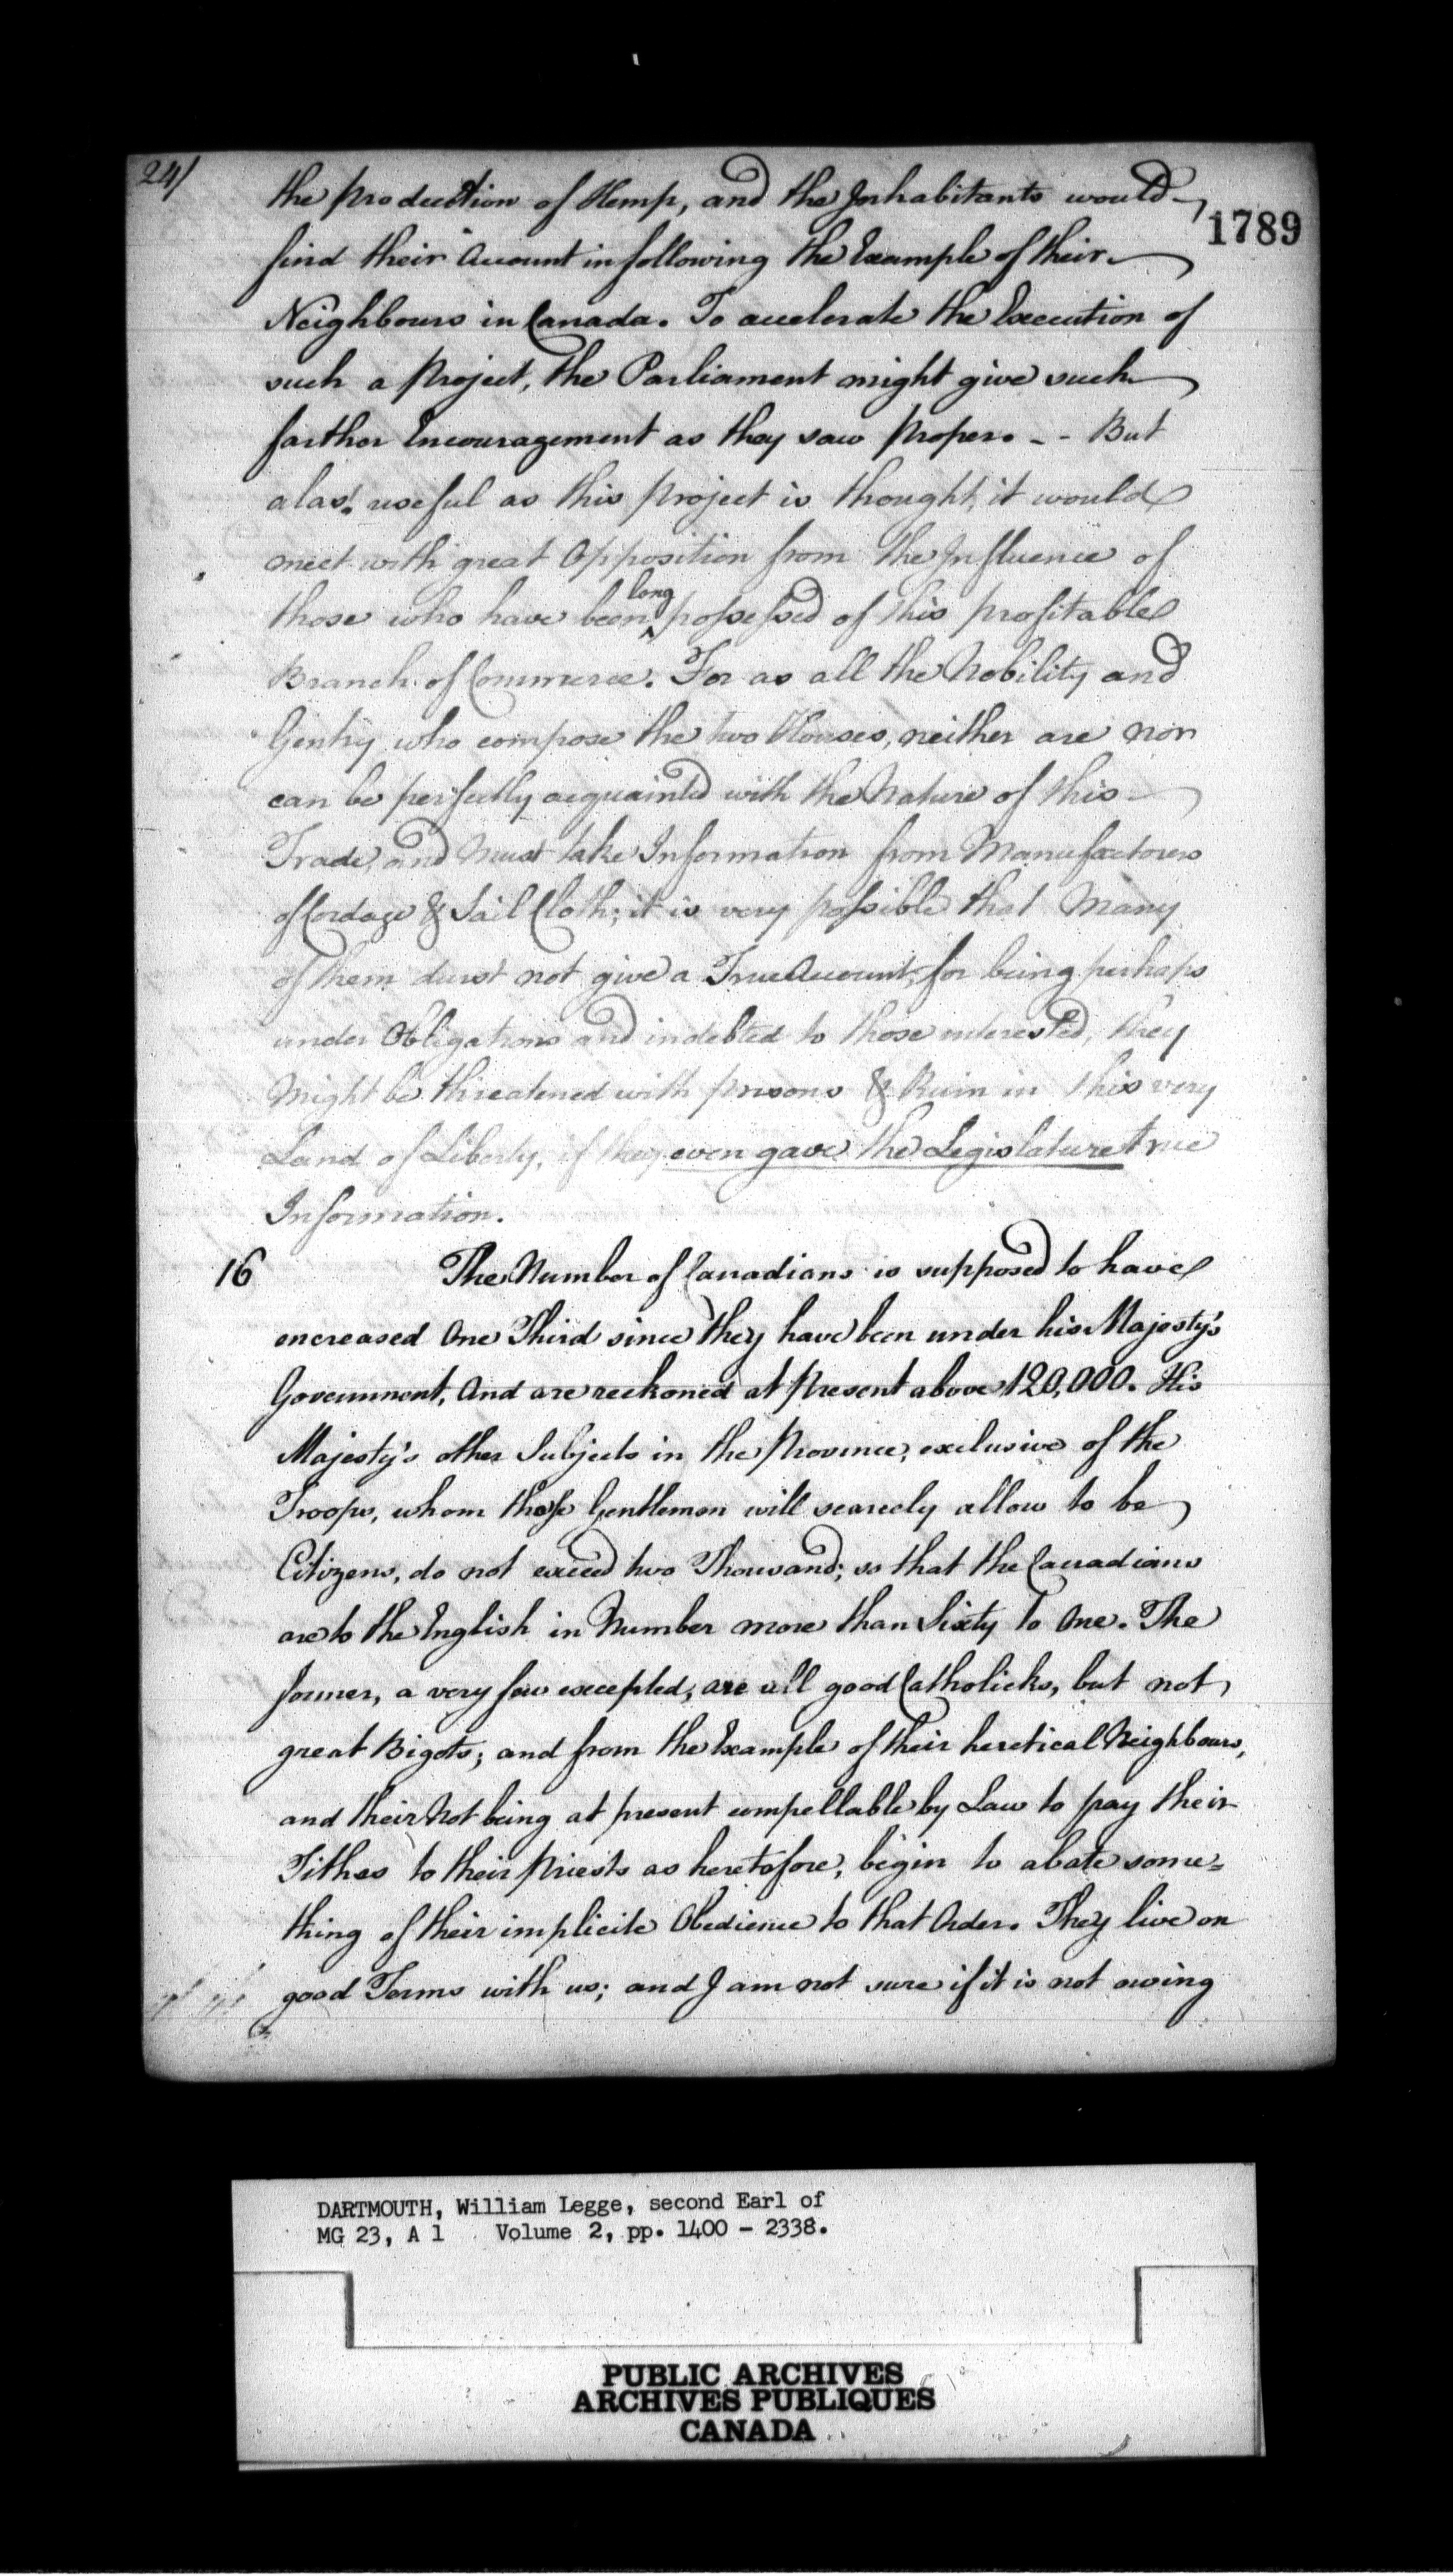 24/
1789
the Production of Hemp, and the Inhabitants would
find their Account in following the Example of their
Neighbours in Canada. To accelerate the Execution of
such a Project, the Parliament might give such
farther Encouragement as they saw proper. - - But
alas! useful as this project is thought, it would
meet with great Opposition from the Influence of
those who have been long possessed of this profitable
Branch of Commerce. For as all the Nobility and
Gentry who compose the two Houses, neither are nor
can be perfectly acquainted with the Nature of this
Trade, and Must take Information from Manufactorers
of Cordage & Sail Cloth; it is very possible that Many
of them durst not give a True Account, for being perhaps
under Obligations and indebted to those interested, they
Might be threatened with prisons & Ruin in this very
Land of Liberty, if they even gave the Legislature true
Information.
16 The Number of Canadians is supposed to have
encreased One Third since they have been under his Majesty's
Government, And are reckoned at Present above 120,000. His
Majesty's other Subjects in the Province, exclusive of the
Troops, whom these Gentlemen will scarcely allow to be
Citizens, do not exceed two Thousand; so that the Canadians
are to the English in Number more than Sixty to One. The
former, a very few excepted, are all good Catholicks, but not
great Bigots; and from the Example of their heretical Neighbours,
and their Not being at present compellable by Law to pay their
Tithes to their Priests as heretofore, begin to abate some=
thing of their implicite Obedience to that Order. They live on
good Terms with us; and I am not sure if it is not owing
DARTMOUTH, William Legge, second Earl of
MG 23, A 1 Volume 2, pp. 1400 - 2338.
PUBLIC ARCHIVES
ARCHIVES PUBLIQUES
CANADA